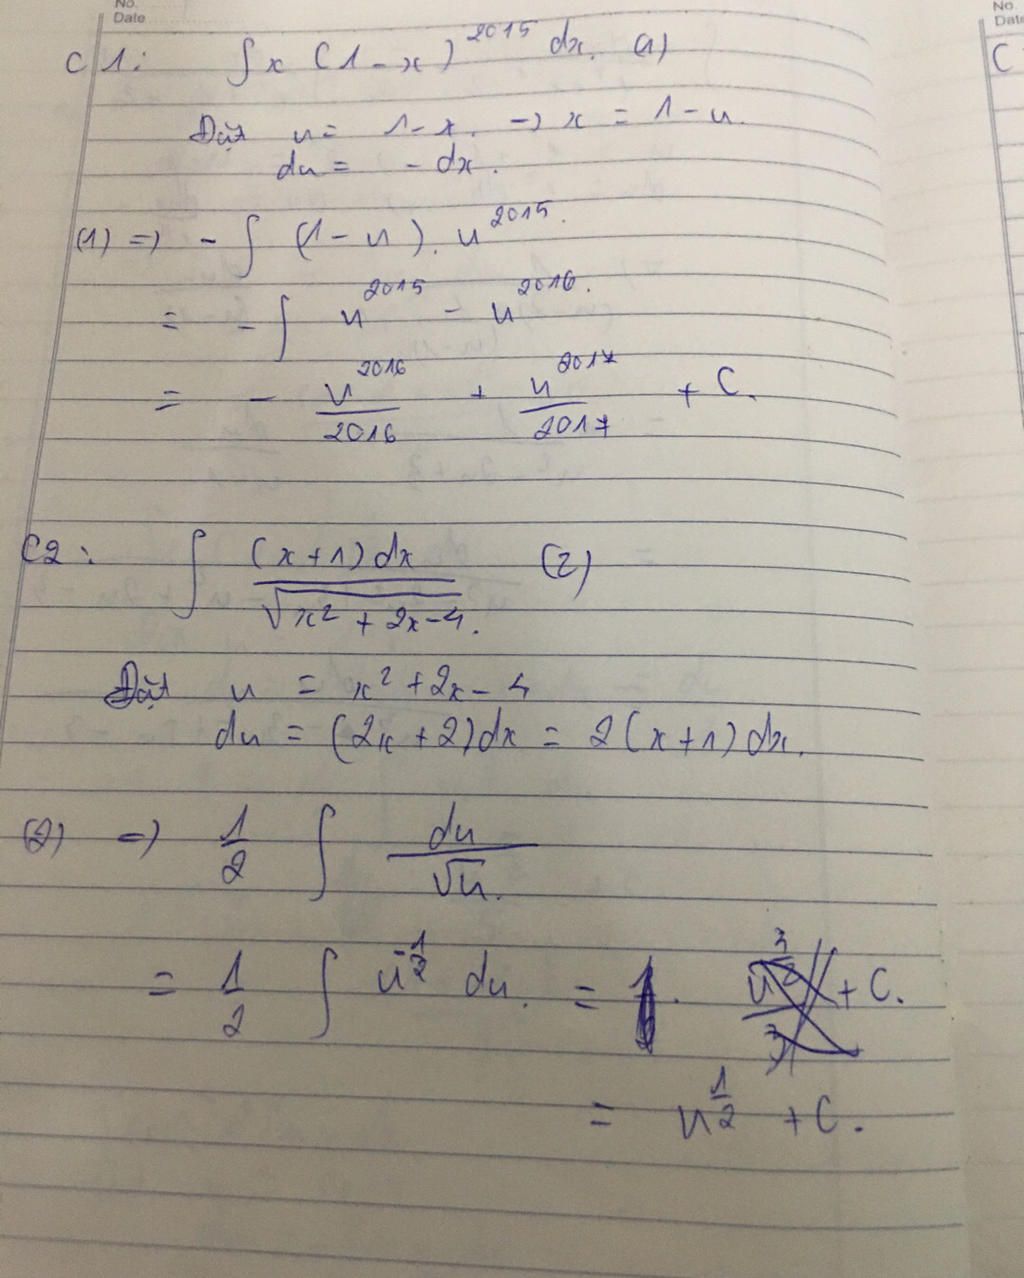 No.
Date
No.
Date
C
C1: ∫ x (1 - x)^2015 dx. (1)
Đặt u = 1 - x. → x = 1 - u.
du = - dx.
(1) ⇒ - ∫ (1 - u). u^2015.
= - ∫ u^2015 - u^2016.
= - u^2016/2016 + u^2017/2017 + C.
C2: ∫ (x+1) dx / √(x² + 2x - 4). (2)
Đặt u = x² + 2x - 4
du = (2x + 2) dx = 2 (x + 1) dx.
(2) ⇒ 1/2 ∫ du/√u.
= 1/2 ∫ u^(-1/2) du. = + C.
= u^(1/2) + C.